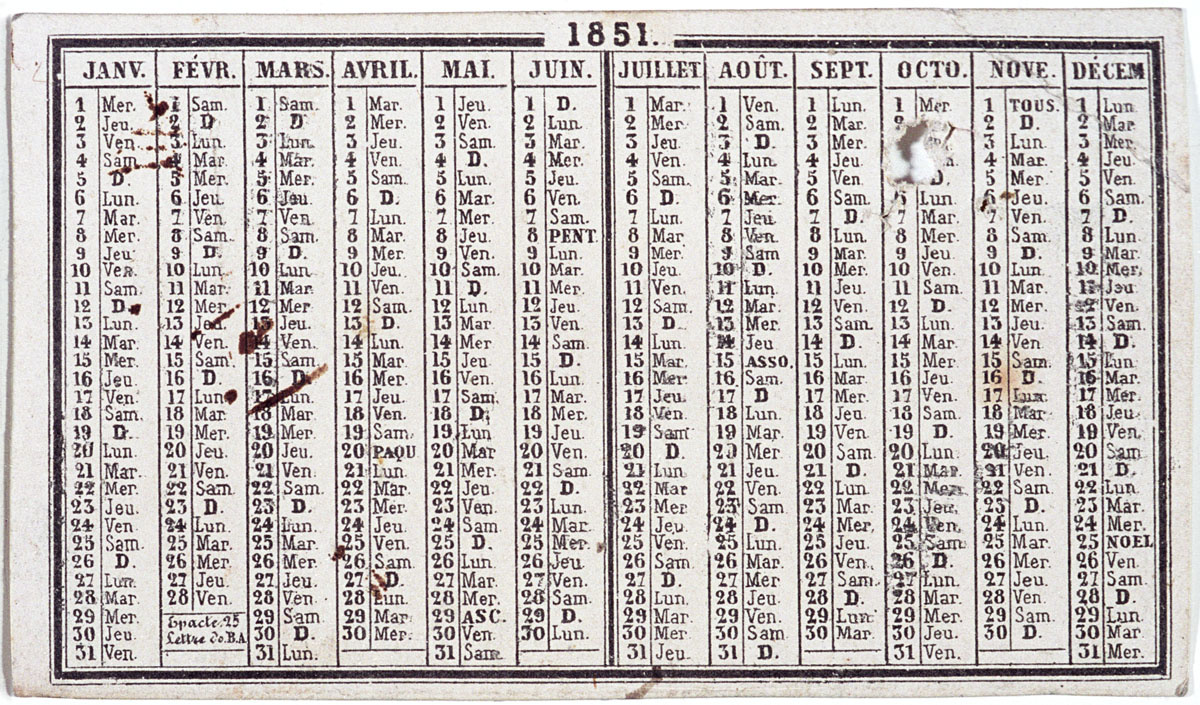 1851.
JANV. FÉVR. MARS. AVRIL. MAI. JUIN. JUILLET AOÛT. SEPT. OCTO. NOVE. DÉCEM
1 Mer. 1 Sam. 1 Sam. 1 Mar. 1 Jeu. 1 D. 1 Mar. 1 Ven. 1 Lun. 1 Mer. 1 TOUS. 1 Lun.
2 Jeu. 2 D 2 D. 2 Mer. 2 Ven. 2 Lun. 2 Mer. 2 Sam. 2 Mar. 2 D. 2 Mar
3 Ven. 3 Lun. 3 Lun. 3 Jeu. 3 Sam. 3 Mar. 3 Jeu. 3 D. 3 Mer. 3 Lun. 3 Mer.
4 Sam. 4 Mar. 4 Mar. 4 Ven. 4 D. 4 Mer. 4 Ven. 4 Lun. 4 Jeu 4 Mar. 4 Jeu
5 D. 5 Mer. 5 Mer. 5 Sam. 5 Lun. 5 Jeu. 5 Sam. 5 Mar. 5 Ven. D. 5 Mer. 5 Ven.
6 Lun. 6 Jeu. 6 Jeu. 6 D. 6 Mar. 6 Ven. 6 D. 6 Mer. 6 Sam. 6 Lun. 6 Jeu. 6 Sam.
7 Mar. 7 Ven. 7 Ven. 7 Lun. 7 Mer. 7 Sam. 7 Lun. 7 Jeu 7 D. 7 Mar. 7 Ven. 7 D.
8 Mer. 8 Sam. 8 Sam. 8 Mar. 8 Jeu. 8 PENT. 8 Mar. 8 Ven. 8 Lun. 8 Mer. 8 Sam. 8 Lun.
9 Jeu. 9 D. 9 D. 9 Mer. 9 Ven. 9 Lun. 9 Mer. 9 Sam 9 Mar. 9 Jeu. 9 D. 9 Mar.
10 Ven. 10 Lun. 10 Lun. 10 Jeu. 10 Sam. 10 Mar. 10 Jeu. 10 D. 10 Mer. 10 Ven. 10 Lun. 10 Mer.
11 Sam. 11 Mar. 11 Mar. 11 Ven. 11 D. 11 Mer. 11 Ven. 11 Lun. 11 Jeu. 11 Sam. 11 Mar. 11 Jeu
12 D. 12 Mer. 12 Mer. 12 Sam. 12 Lun. 12 Jeu. 12 Sam. 12 Mar. 12 Ven. 12 D. 12 Mer. 12 Ven.
13 Lun. 13 Jeu. 13 Jeu. 13 D. 13 Mar. 13 Ven. 13 D. 13 Mer. 13 Sam. 13 Lun. 13 Jeu. 13 Sam.
14 Mar. 14 Ven. 14 Ven. 14 Lun. 14 Mer. 14 Sam. 14 Lun. 14 Jeu. 14 D. 14 Mar. 14 Ven. 14 D.
15 Mer. 15 Sam. 15 Sam. 15 Mar. 15 Jeu. 15 D. 15 Mar. 15 ASSO. 15 Lun. 15 Mer. 15 Sam. 15 Lun.
16 Jeu. 16 D. 16 D. 16 Mer. 16 Ven. 16 Lun. 16 Mer. 16 Sam. 16 Mar. 16 Jeu. 16 D. 16 Mar.
17 Ven. 17 Lun. 17 Lun. 17 Jeu. 17 Sam. 17 Mar. 17 Jeu. 17 D 17 Mer. 17 Ven. 17 Lun. 17 Mer.
18 Sam. 18 Mar. 18 Mar. 18 Ven. 18 D. 18 Mer. 18 Ven. 18 Lun. 18 Jeu. 18 Sam. 18 Mar. 18 Jeu.
19 D. 19 Mer. 19 Mer. 19 Sam. 19 Lun 19 Jeu. 19 Sam 19 Mar. 19 Ven. 19 D. 19 Mer. 19 Ven.
20 Lun. 20 Jeu. 20 Jeu. 20 PAQU 20 Mar 20 Ven. 20 D. 20 Mer. 20 Sam. 20 Lun. 20 Jeu. 20 Sam
21 Mar. 21 Ven. 21 Ven. 21 Lun. 21 Mer. 21 Sam. 21 Lun 21 Jeu. 21 D. 21 Mar. 21 Ven. 21 D.
22 Mer. 22 Sam. 22 Sam. 22 Mar. 22 Jeu. 22 D. 22 Mar 22 Ven. 22 Lun. 22 Mer. 22 Sam. 22 Lun.
23 Jeu. 23 D. 23 D. 23 Mer. 23 Ven. 23 Lun. 23 Mer 23 Sam. 23 Mar. 23 Jeu. 23 D. 23 Mar.
24 Ven. 24 Lun. 24 Lun. 24 Jeu. 24 Sam 24 Mar. 24 Jeu. 24 D. 24 Mer. 24 Ven. 24 Lun. 24 Mer.
25 Sam. 25 Mar. 25 Mar. 25 Ven. 25 D. 25 Mer. 25 Ven. 25 Lun. 25 Jeu. 25 Sam. 25 Mar. 25 NOEL
26 D. 26 Mer. 26 Mer. 26 Sam. 26 Lun. 26 Jeu. 26 Sam. 26 Mar. 26 Ven. 26 D. 26 Mer. 26 Ven.
27 Lun. 27 Jeu. 27 Jeu. 27 D. 27 Mar. 27 Ven. 27 D. 27 Mer 27 Sam. 27 Lun. 27 Jeu. 27 Sam.
28 Mar. 28 Ven. 28 Ven. 28 Lun. 28 Mer. 28 Sam. 28 Lun. 28 Jeu. 28 D. 28 Mar. 28 Ven. 28 D.
29 Mer. Epacte.25 29 Sam. 29 Mar. 29 ASC. 29 D. 29 Mar. 29 Ven. 29 Lun. 29 Mer. 29 Sam. 29 Lun.
30 Jeu. Lettre do.B.A. 30 D. 30 Mer. 30 Ven. 30 Lun. 30 Mer. 30 Sam. 30 Mar. 30 Jeu. 30 D. 30 Mar
31 Ven. 31 Lun. 31 Sam. 31 Jeu. 31 D. 31 Ven. 31 Mer.